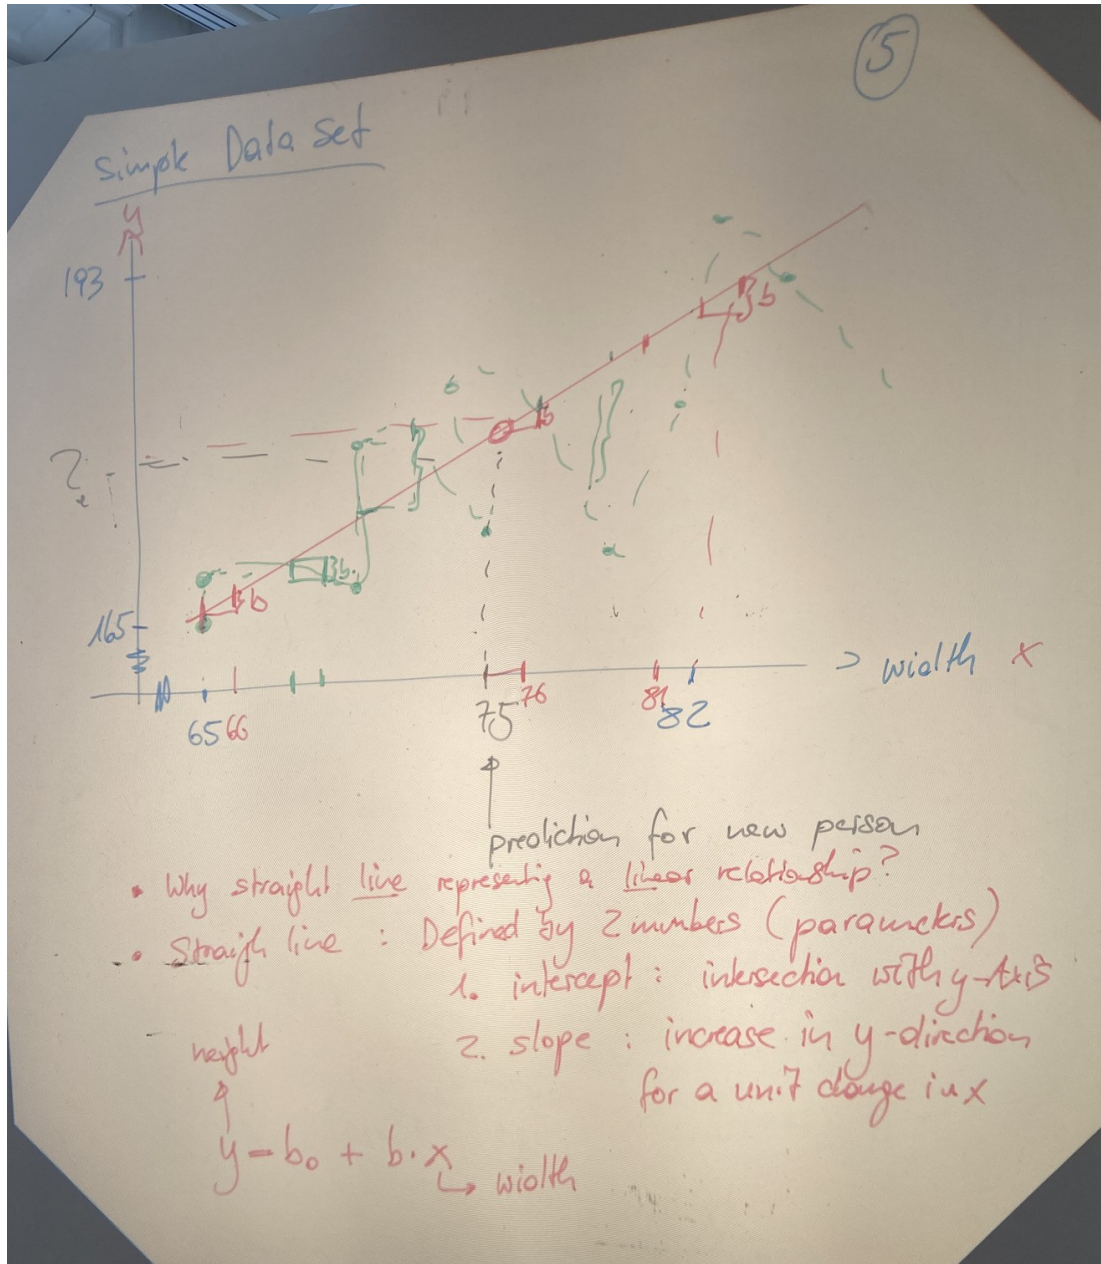 5
Simple Data Set
y
193
b
6
b
?
b
b
165
65 66 75 76 81 82
> width x
prediction for new person
• Why straight line representig a linear relationship?
• Straigh line : Defined by 2 numbers (parameters)
1. intercept : intersection with y-Axis
2. slope : increase in y-direction
for a unit change in x
height
y = b₀ + b · x
width